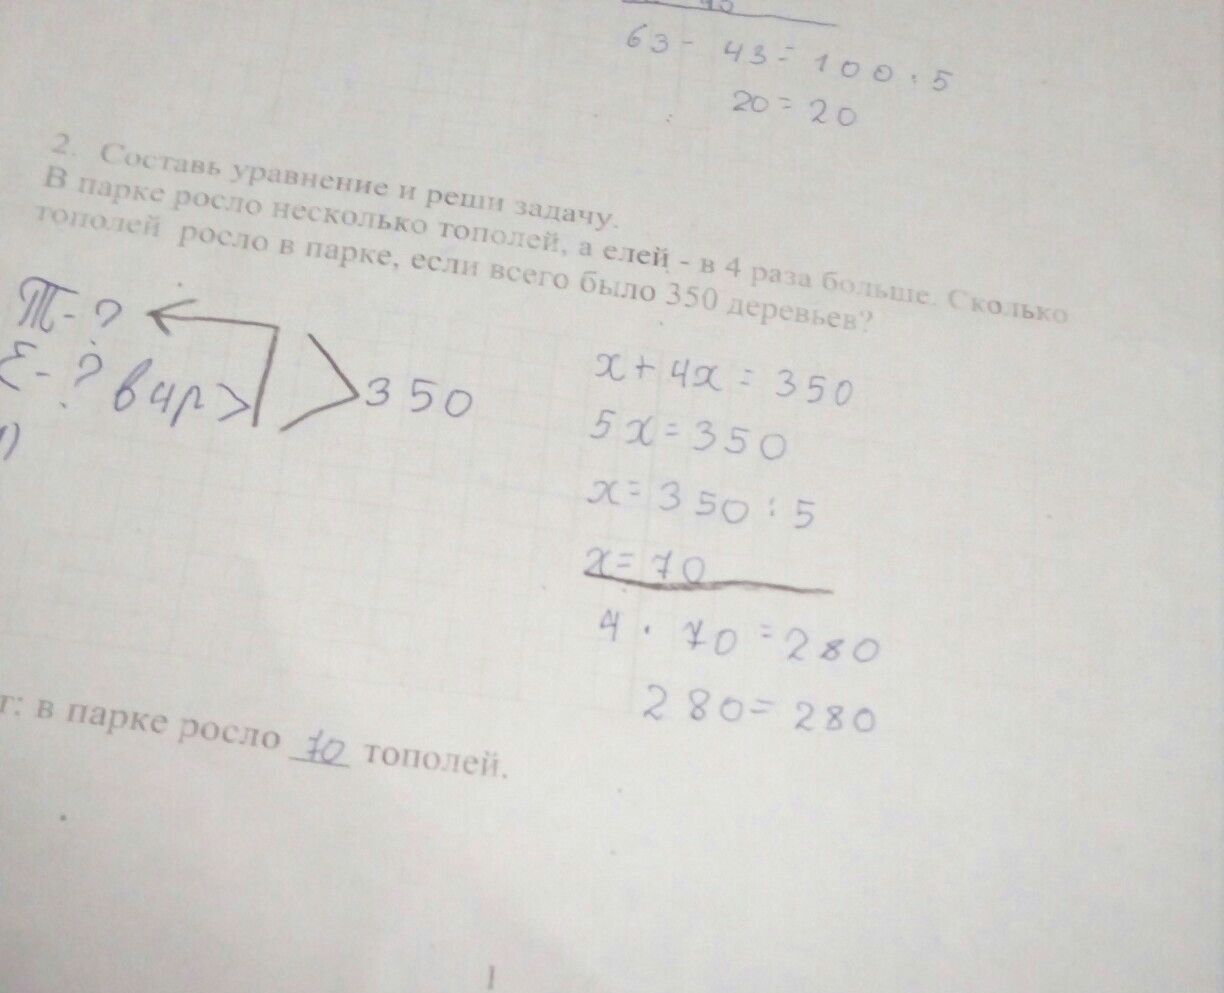 63 - 43 = 100 : 5
20 = 20
2. Составь уравнение и реши задачу.
В парке росло несколько тополей, а елей - в 4 раза больше. Сколько
тополей росло в парке, если всего было 350 деревьев?
Т - ?
Е - ? в 4р > 350
x + 4x = 350
5x = 350
x = 350 : 5
x = 70
4 · 70 = 280
280 = 280
т: в парке росло 70 тополей.
1